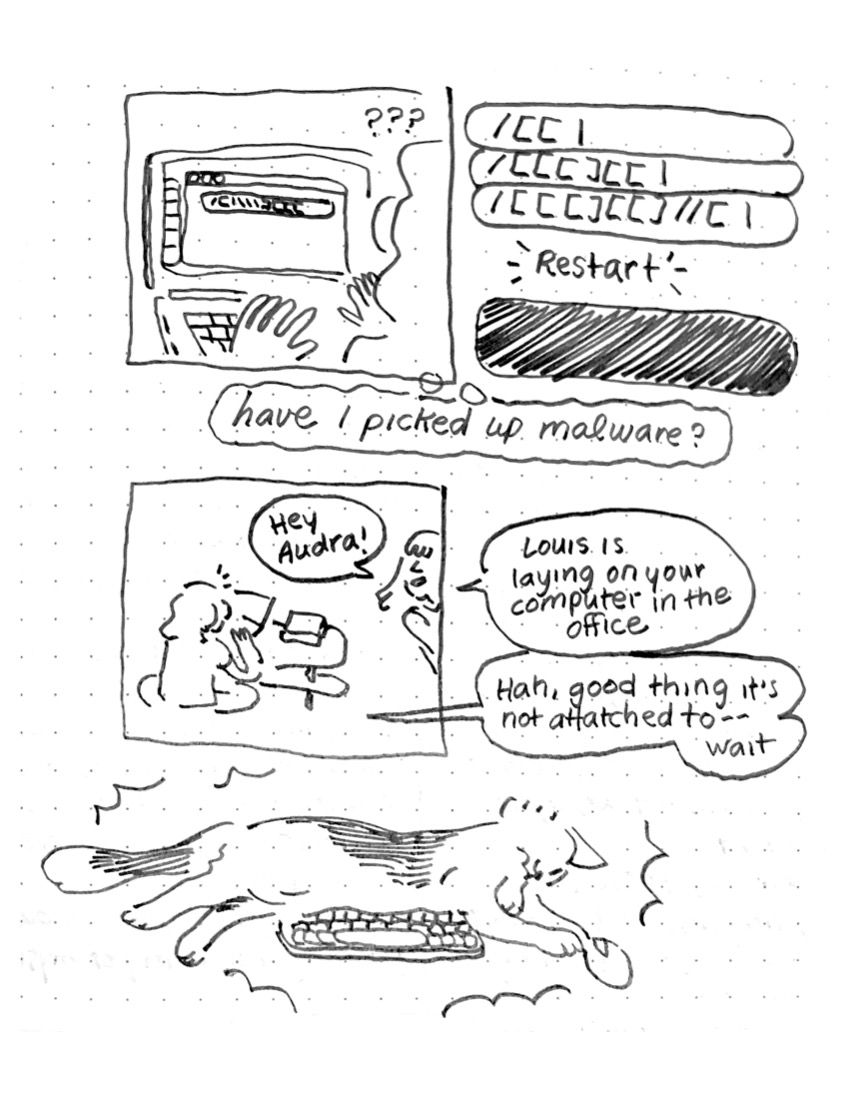 ???
/[[]]\\\\][[[
/[[ |
/[[[][[ |
/[[[][[]//[ |
Restart
have I picked up malware?
Hey
Audra!
Louis is
laying on your
computer in the
office
Hah, good thing it's
not attatched to--
wait